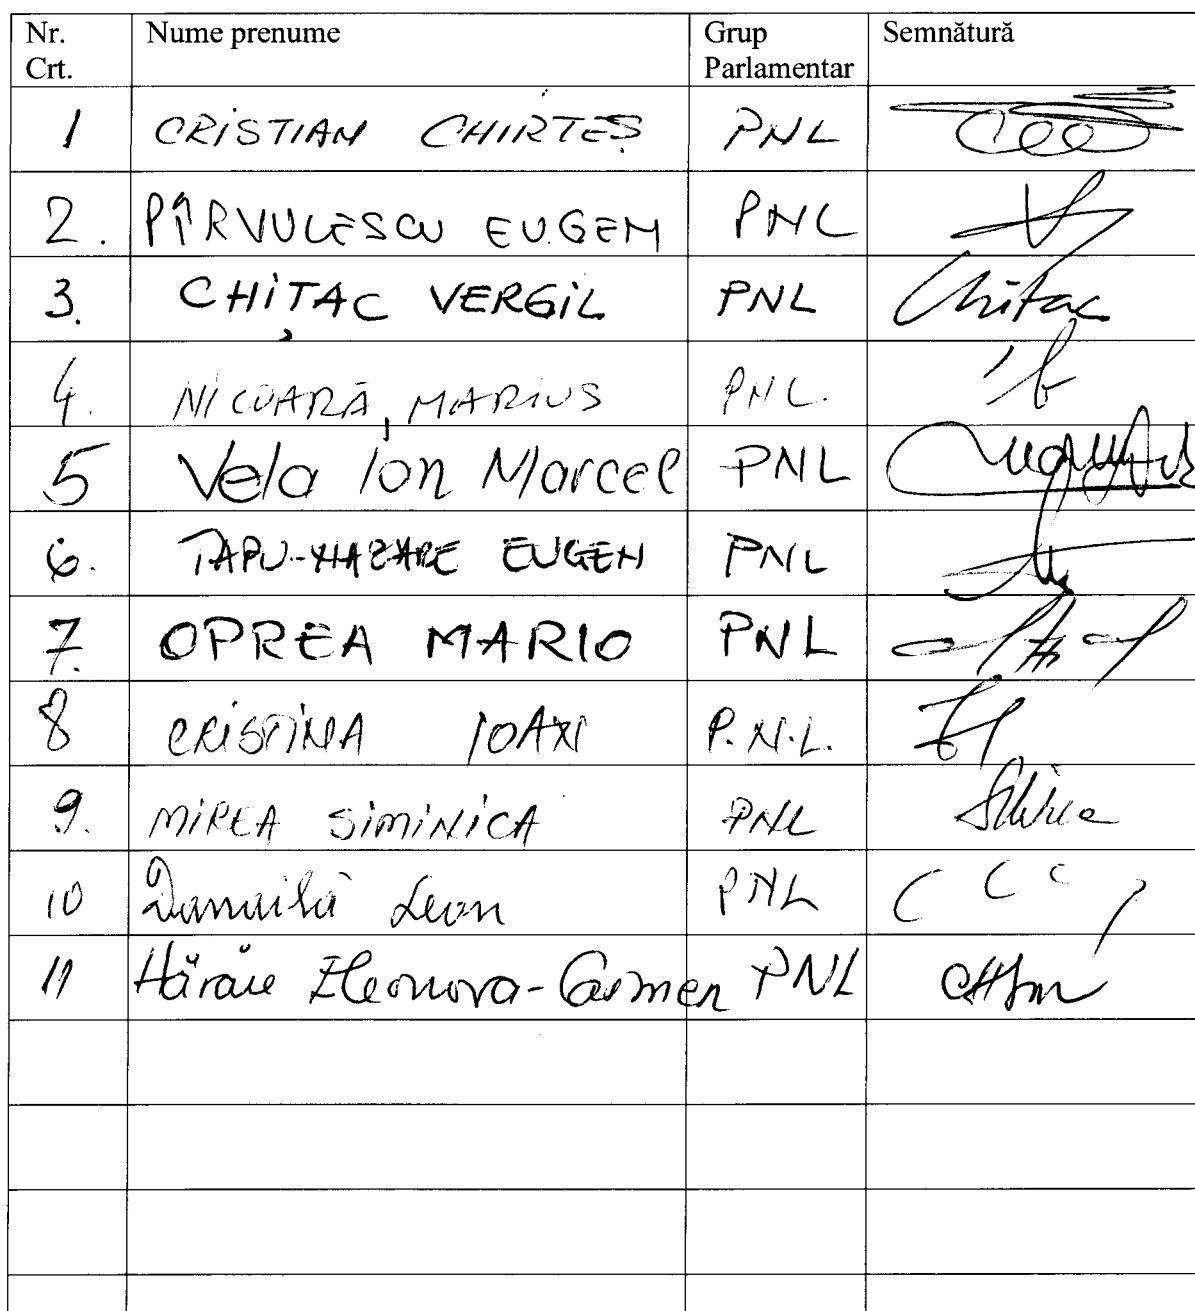 Nr. Crt. Nume prenume Grup Parlamentar Semnătură
1 CRISTIAN CHIRTEȘ PNL
2. PÎRVULESCU EUGEN PNL
3. CHIȚAC VERGIL PNL Chițac
4. NICOARĂ, MARIUS PNL.
5 Vela Ion Marcel PNL
6. ȚAPU-NAZARE EUGEN PNL
7. OPREA MARIO PNL
8 CRISTINA IOAN P.N.L.
9. MIREA SIMINICA PNL
10 Danăilă Leon PNL
11 Hărău Eleonora-Carmen PNL